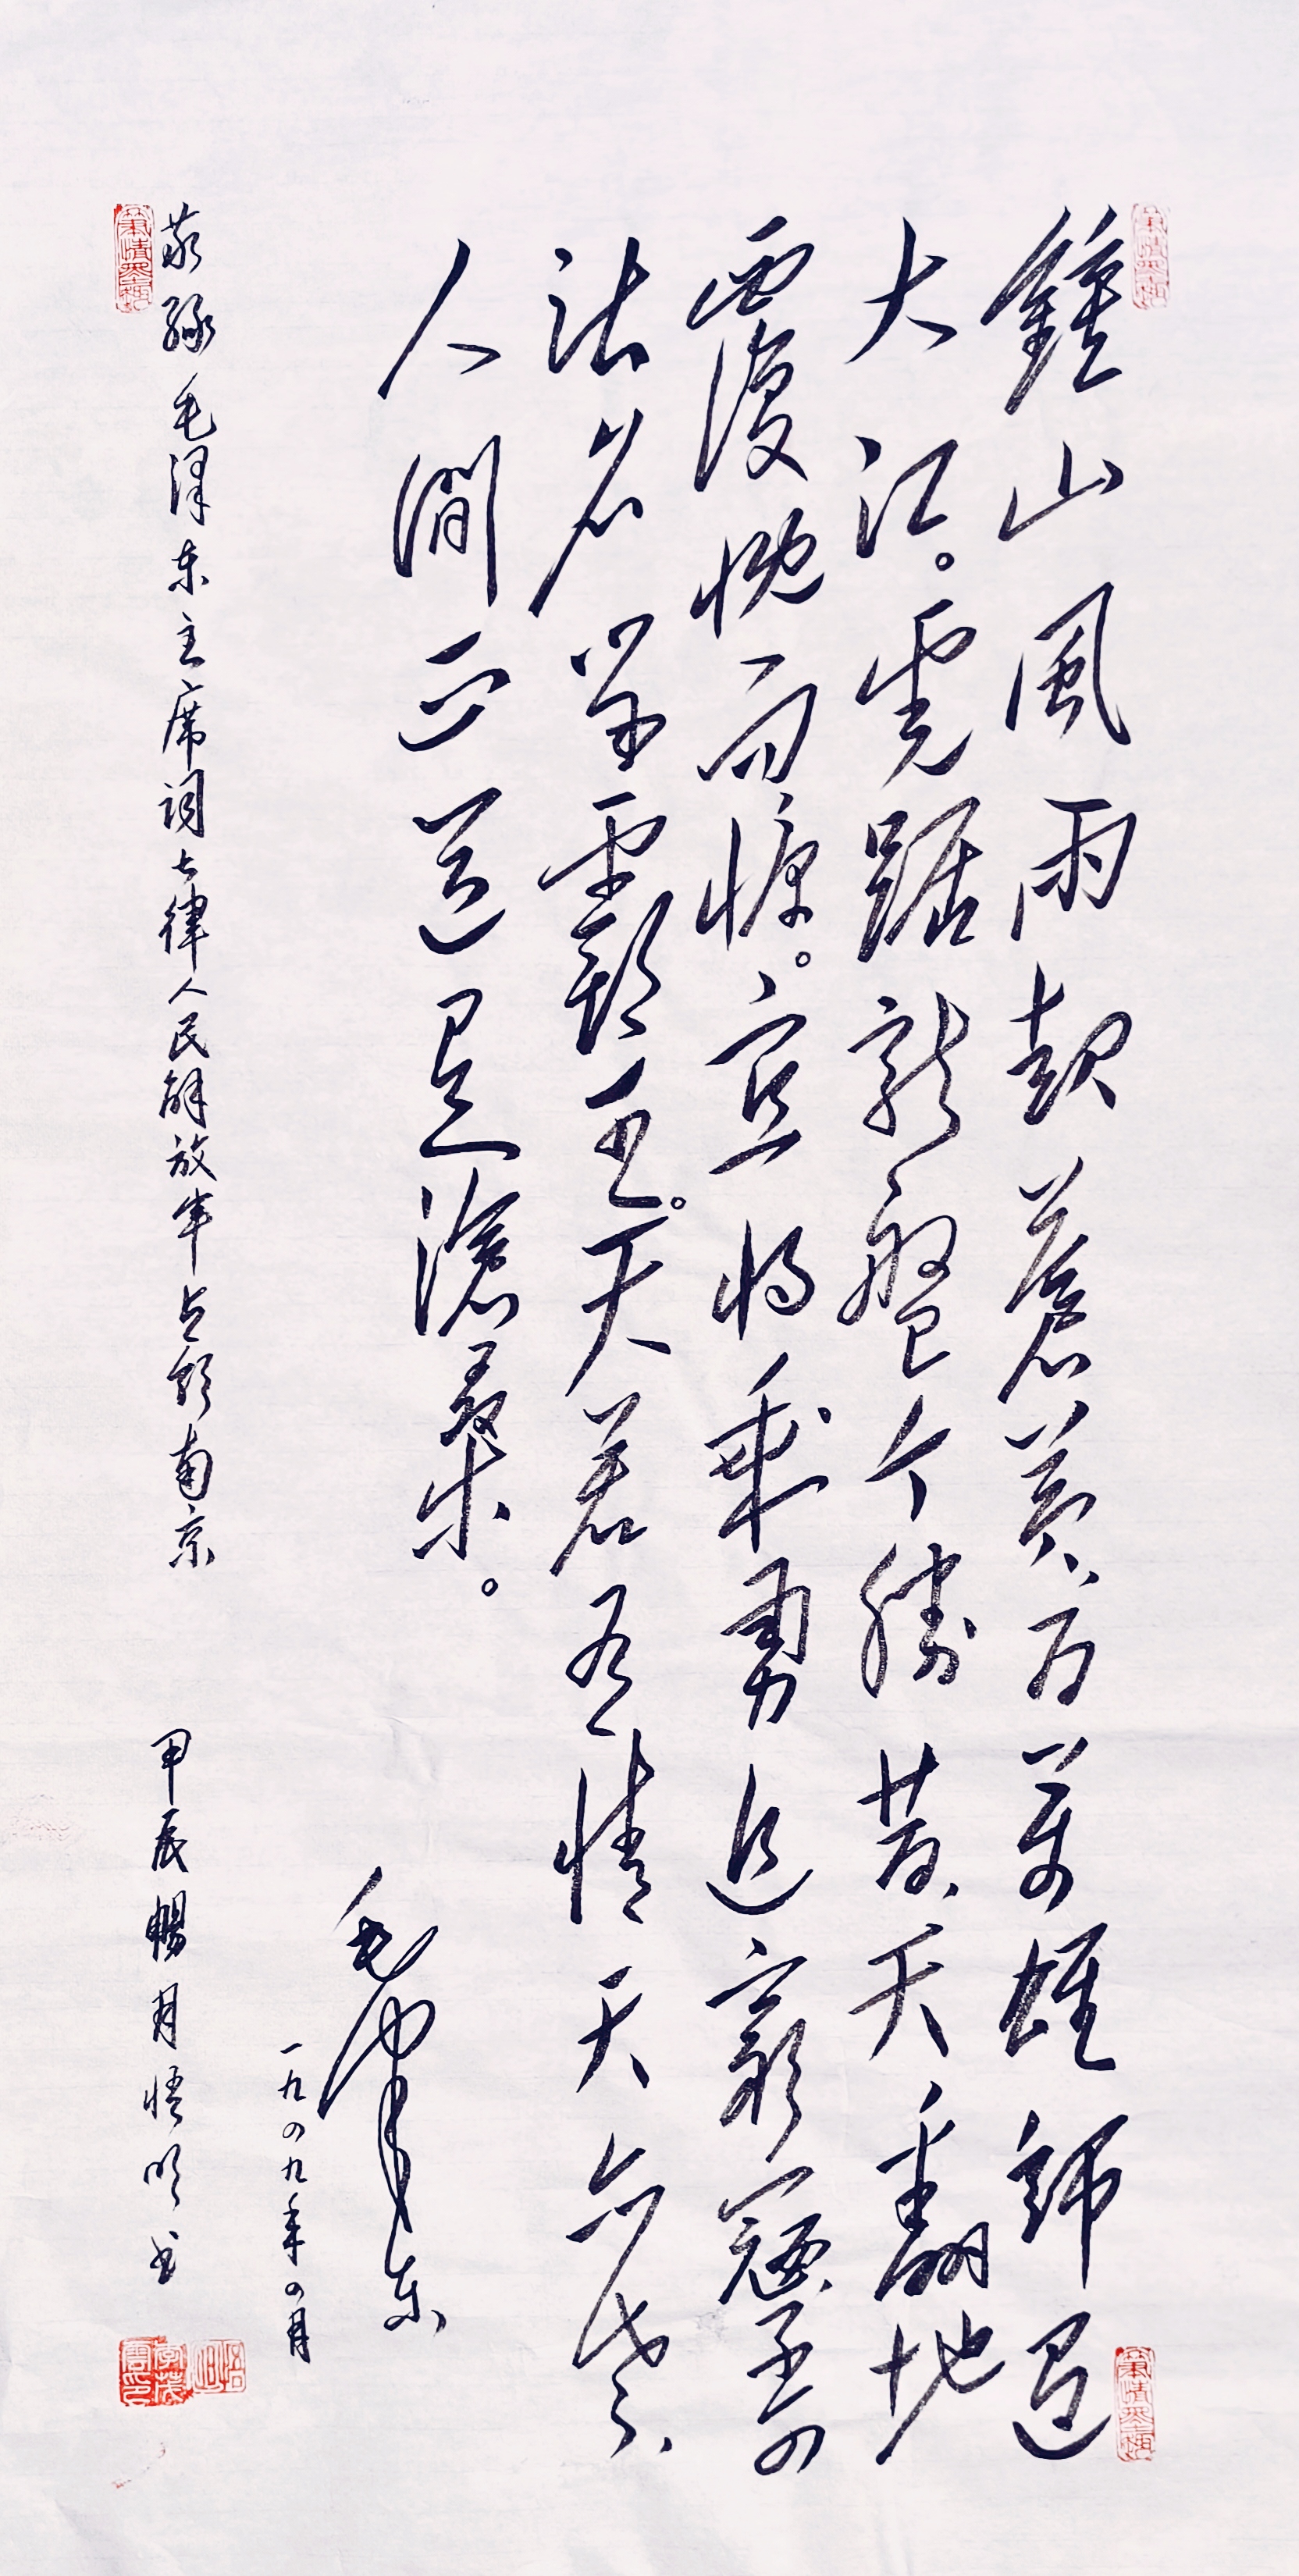 鍾山風雨起蒼黃、百萬雄師過
大江。虎踞龍盤今勝昔、天翻地
覆慨而慷。宜將剩勇追窮寇、不可
沽名學霸王。天若有情天亦老、
人間正道是滄桑。
毛澤东
一九四九年四月
敬録毛澤东主席词七律人民解放军占领南京
甲辰暢月悟明书